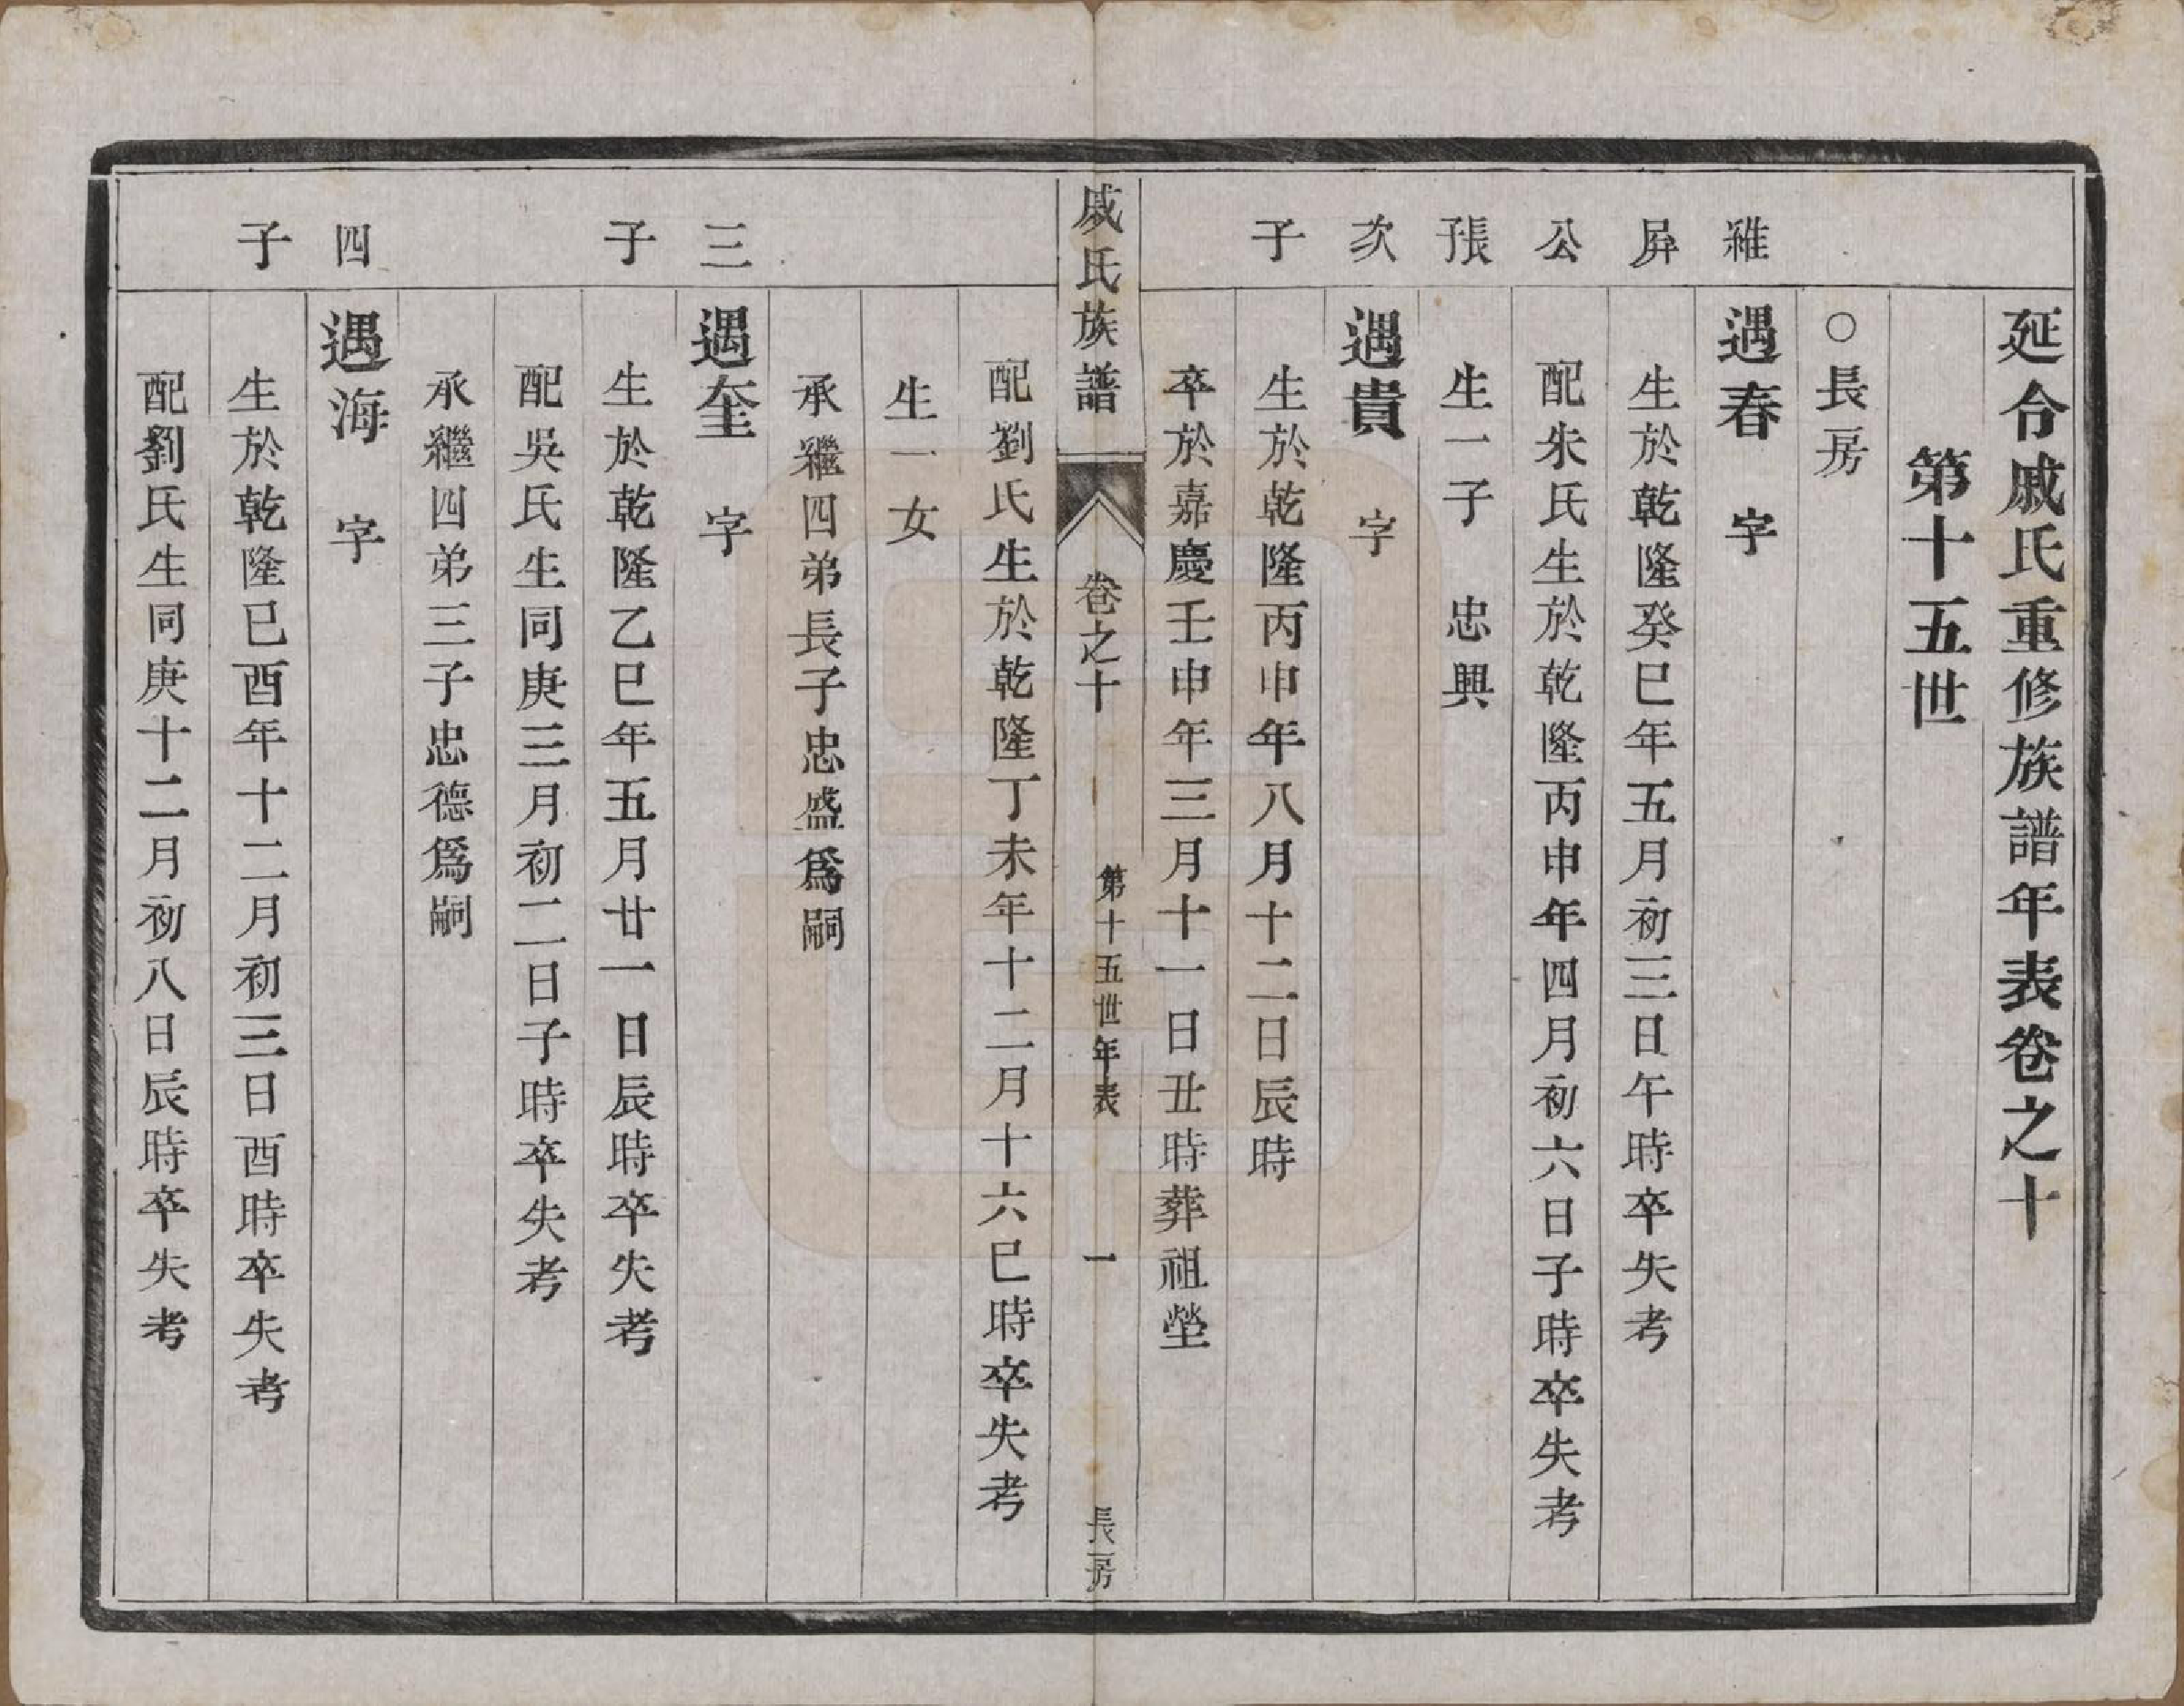 延令戚氏重修族譜年表卷之十
第十五世
○長房
維屏公長子
遇春 字
生於乾隆癸巳年五月初三日午時卒失考
配朱氏生於乾隆丙申年四月初六日子時卒失考
生一子 忠興
次子
遇貴 字
生於乾隆丙申年八月十二日辰時
卒於嘉慶壬申年三月十一日丑時葬祖塋
戚氏族譜 卷之十 第十五世年表 一 長房
配劉氏生於乾隆丁未年十二月十六巳時卒失考
生一女
承繼四弟長子忠盛爲嗣
三子
遇奎 字
生於乾隆乙巳年五月廿一日辰時卒失考
配吳氏生同庚三月初二日子時卒失考
承繼四弟三子忠德爲嗣
四子
遇海 字
生於乾隆己酉年十二月初三日酉時卒失考
配劉氏生同庚十二月初八日辰時卒失考